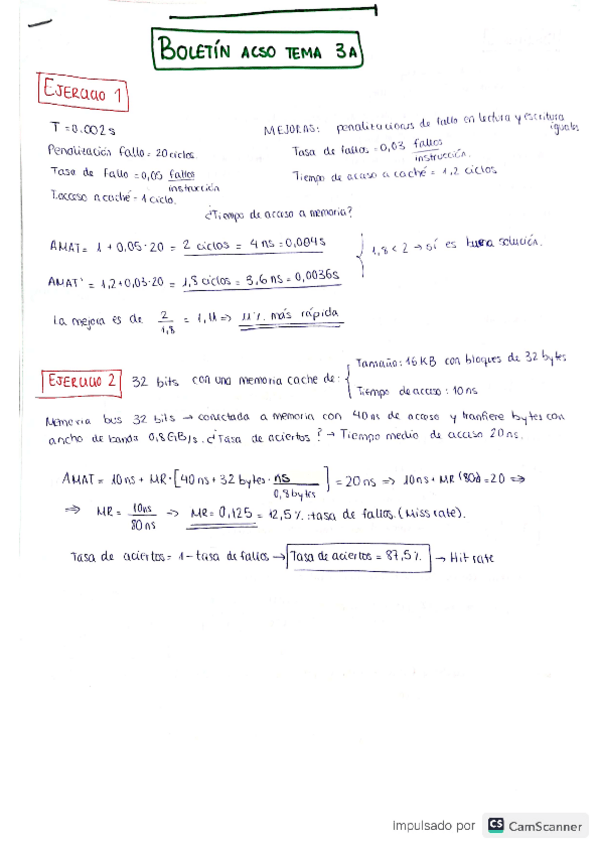 BOLETÍN ACSO TEMA 3A
EJERCICIO 1
T = 0.002 s
Penalización fallo = 20 ciclos.
Tasa de fallo = 0,05 fallos/instrucción
T.acceso a caché = 1 ciclo.
MEJORAS: penalizaciones de fallo en lectura y escritura iguales
Tasa de fallos = 0,03 fallos/instrucción.
Tiempo de acceso a caché = 1,2 ciclos
¿Tiempo de acceso a memoria?
AMAT = 1 + 0.05 · 20 = 2 ciclos = 4 ns = 0,004s
AMAT' = 1,2 + 0,03 · 20 = 1,8 ciclos = 3,6 ns = 0,0036s
1,8 < 2 → sí es buena solución.
La mejora es de 2/1,8 = 1,11 ⇒ 11% más rápida
EJERCICIO 2 32 bits con una memoria cache de:
Tamaño: 16 KB con bloques de 32 bytes
Tiempo de acceso: 10 ns
Memoria bus 32 bits → conectada a memoria con 40 ns de acceso y tranfiere bytes con
ancho de banda 0,8 GiB/s. ¿Tasa de aciertos? → Tiempo medio de acceso 20 ns.
AMAT = 10 ns + MR · [40 ns + 32 bytes · ns/0,8 bytes] = 20 ns ⇒ 10 ns + MR (80) = 20 ⇒
⇒ MR = 10ns/80 ns ⇒ MR = 0,125 = 12,5% :tasa de fallos. (Miss rate).
Tasa de aciertos = 1 - tasa de fallos → Tasa de aciertos = 87,5% → Hit rate
Impulsado por CS CamScanner